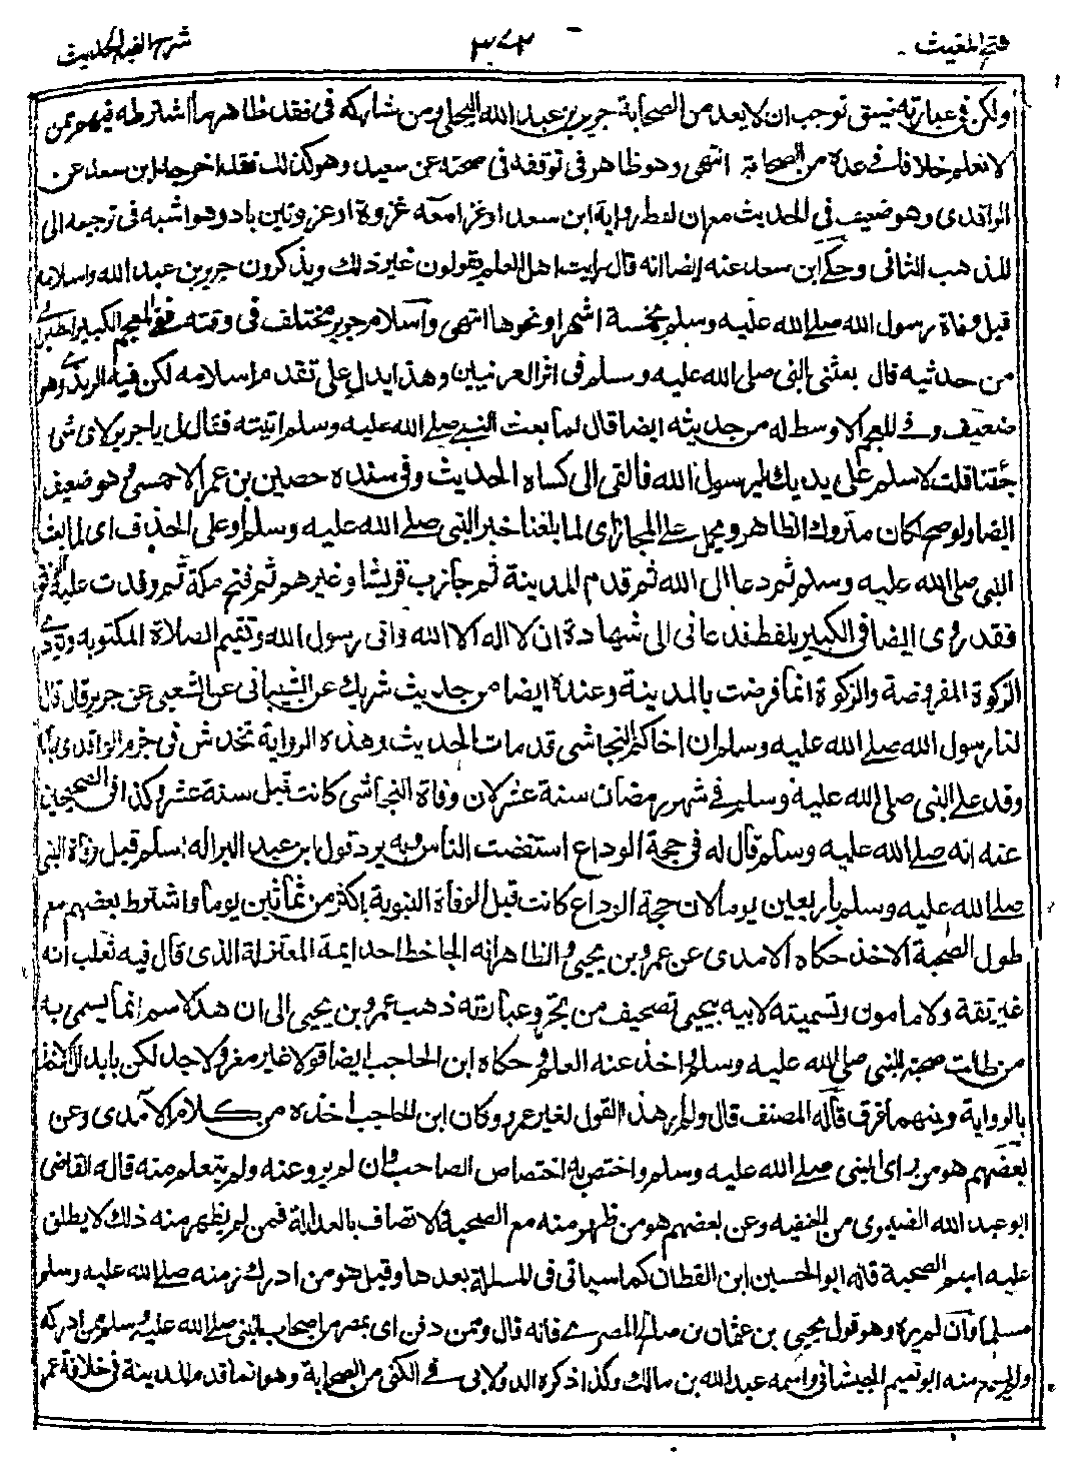 فتح المغيث
٣٧٢
شرح الفية الحديث
ولكن في عبارته ضيق توجب ان لا يعد من الصحابة جرير بن عبد الله البجلي ومن شاركه في فقد ظاهر ما اشترطه فيهم ممن
لا نعلم خلافا في عده من الصحابة انتهى وهو ظاهر في توقفه في صحته عن سعيد وهو كذلك فقد اخرجه ابن سعد عن
الواقدى وهو ضعيف في الحديث مع ان لفظ رواية ابن سعد او غزا معه غزوة او غزوتين باو وهو اشبه في ترجيعه الى
المذهب الثانى وحكى ابن سعد عنه ايضا انه قال رايت اهل العلم يقولون غير ذلك ويذكرون جرير بن عبد الله واسلامه
قبل وفاة رسول الله صلى الله عليه وسلم بخمسة اشهر او نحوها انتهى واسلام جرير مختلف في وقته ففي المعجم الكبير للطبراني
من حديثه قال بعثنى النبى صلى الله عليه وسلم فى اثر العرنيين وهذا يدل على تقدم اسلامه لكن فيه الربذي وهو
ضعيف وفي المعجم الاوسط له من حديثه ايضا قال لما بعث النبي صلى الله عليه وسلم اتيته فقال لى يا جرير لاى شى
جئتنا قلت لاسلم على يديك يا رسول الله فالقى الى كساه الحديث وفي سنده حصين بن عمر الاحمسى وهو ضعيف
ايضا ولو صح لكان متروك الظاهر ويحمل على المجاز اى لما بلغنا خبر النبى صلى الله عليه وسلم او على الحذف اى لما بعث
النبي صلى الله عليه وسلم ثم دعا الى الله ثم قدم المدينة ثم حارب قريشا وغيرهم ثم فتح مكة ثم وفدت عليه
فقد روى ايضا في الكبير بلفظ فدعانى الى شهادة ان لا اله الا الله وانى رسول الله وتقيم الصلاة المكتوبة وتؤدى
الزكوة المفروضة والزكوة انما فرضت بالمدينة وعنده ايضا من حديث شريك عن الشيبانى عن الشعبى عن جرير قال قال
لنا رسول الله صلى الله عليه وسلم ان اخاكم النجاشى قد مات الحديث وهذه الرواية تخدش في جزم الواقدى بانه
وفد على النبى صلى الله عليه وسلم في شهر رمضان سنة عشر لان وفاة النجاشى كانت قبل سنة عشر وكذا في الصحيحين
عنه انه صلى الله عليه وسلم قال له في حجة الوداع استنصت الناس وبه يرد قول ابن عبد البر انه اسلم قبل وفاة النبى
صلى الله عليه وسلم باربعين يوما لان حجة الوداع كانت قبل الوفاة النبوية باكثر من ثمانين يوما واشترط بعضهم مع
طول الصحبة الاخذ حكاه الامدى عن عمرو بن يحيى والظاهر انه الجاحظ احد ايمة المعتزلة الذى قال فيه ثعلب انه
غير ثقة ولا مامون وتسميته لابيه بيحيى تصحيف من بحر وعبارته ذهب عمرو بن يحيى الى ان هذا الاسم انما يسمى به
من طالت صحبته للنبى صلى الله عليه وسلم واخذ عنه العلم وحكاه ابن الحاجب ايضا قولا غير معزو لاحد لكن بابدال الاخذ
بالرواية وبينهما فرق قاله المصنف قال ولم ار هذا القول لغير عمرو وكان ابن الحاجب اخذه من كلام الآمدى وعن
بعضهم هو من راى النبى صلى الله عليه وسلم واختص به اختصاص الصاحب وان لم يرو عنه ولم يتعلم منه قاله القاضى
ابو عبد الله الصيمرى من الحنفيه وعن بعضهم هو من ظهر منه مع الصحبة الاتصاف بالعدالة فمن لم يظهر منه ذلك لا يطلق
عليه اسم الصحبة قاله ابو الحسين ابن القطان كما سياتى في المسئلة بعدها وقيل هو من ادرك زمنه صلى الله عليه وسلم
مسلما وان لم يره وهو قول يحيى بن عثمان بن صالح المصري فانه قال وممن دفن اى بمصر من اصحاب النبى صلى الله عليه وسلم ممن ادركه
ولم يسمع منه ابو تميم الجيشانى واسمه عبد الله بن مالك وكذا ذكره الدولابى في الكنى من الصحابة وهو انما قدم المدينة فى خلافة عمر